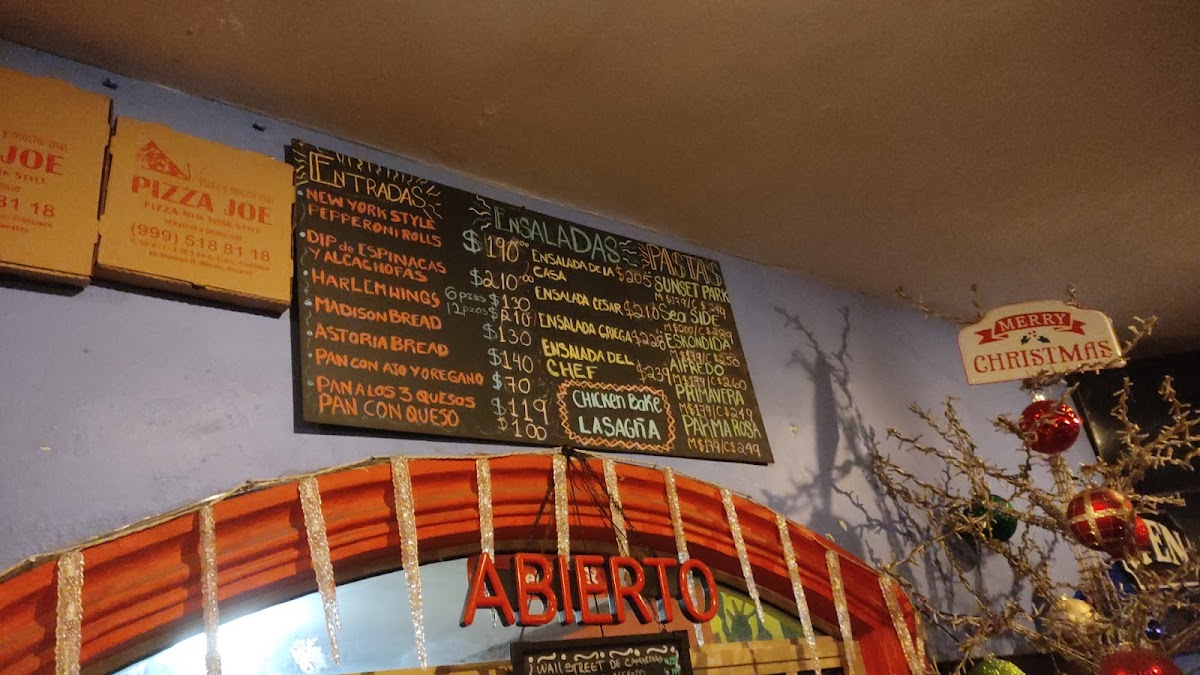 JOE
STYLE
81 18
PIZZA JOE
PIZZA NEW YORK STYLE
(999) 518 81 18
ENTRADAS
NEW YORK STYLE
PEPPERONI ROLLS $190.00
DIP de ESPINACAS
Y ALCACHOFAS $210.00
HARLEM WINGS 6 pzas $130
12 pzas $210
MADISON BREAD $130
ASTORIA BREAD $140
PAN CON AJO Y OREGANO $70
PAN A LOS 3 QUESOS $119
PAN CON QUESO $100
ENSALADAS
ENSALADA DE LA
CASA $205
ENSALADA CESAR $210
ENSALADA GRIEGA $228
ENSALADA DEL
CHEF $239
CHICKEN BAKE
LASAGÑA
PASTAS
SUNSET PARK
M $179/C $249
Sea SIDE
M $200/C $289
ESKONDIDA
ALFREDO
M $179/C $260
PRIMAVERA
M $179/C $249
PARMA ROSA
M $179/C $249
MERRY
CHRISTMAS
ABIERTO
WALL STREET DE CAMARONES